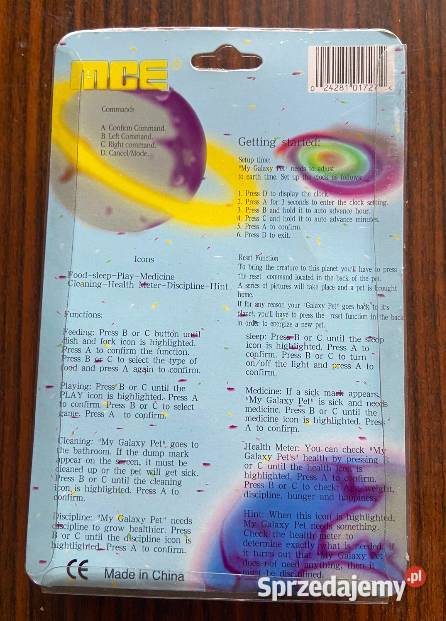 MCE
Commands
A. Confirm Command.
B. Left Command.
C. Right command.
D. Cancel/Mode...
Getting started:
Setup time:
"My Galaxy Pet" needs to adjust
to earth time. Set up the clock as follows:
1. Press D to display the clock.
2. Press A for 3 seconds to enter the clock setting.
3. Press B and hold it to auto advance hour.
4. Press C and hold it to auto advance minutes.
5. Press A to confirm.
6. Press D to exit.
Icons
Food-sleep-Play-Medicine
Cleaning-Health Meter-Discipline-Hint
Reset Function
To bring the creature to this planet you'll have to press
the reset command located in the back of the pet.
A series of pictures will take place and a pet is brought
home.
If for any reason your "Galaxy Pet" goes back to it's
planet, you'll have to press the reset function in the back
in order to energize a new pet.
Functions:
Feeding: Press B or C button until
fish and fork icon is highlighted.
Press A to confirm the function.
Press B or C to select the type of
food and press A again to confirm.
Playing: Press B or C until the
PLAY icon is highlighted. Press A
to confirm. Press B or C to select
game. Press A to confirm.
Cleaning: "My Galaxy Pet" goes to
the bathroom. If the dump mark
appear on the screen, it must be
cleaned up or the pet will get sick.
Press B or C until the cleaning
icon is highlighted. Press A to
confirm.
Discipline: "My Galaxy Pet" needs
discipline to grow healthier. Press
B or C until the discipline icon is
hightlighted. Press A to confirm.
sleep: Press B or C until the sleep
icon is highlighted. Press A to
confirm. Press B or C to turn
on/off the light and press A to
confirm.
Medicine: If a sick mark appears,
"My Galaxy Pet" is sick and needs
medicine. Press B or C until the
medicine icon is highlighted. Press
A to confirm.
Health Meter: You can check "My
Galaxy Pet's" health by pressing
B or C until the health icon is
highlighted. Press A to confirm.
Press B or C to check age, weight,
discipline, hunger and happiness.
Hint: When this icon is highlighted,
My Galaxy Pet needs something.
Check the health meter to
determine exactly what is needed. If
it turns out that "My Galaxy Pet"
does not need anything, then it
must be disciplined.
CE Made in China
Sprzedajemy.pl